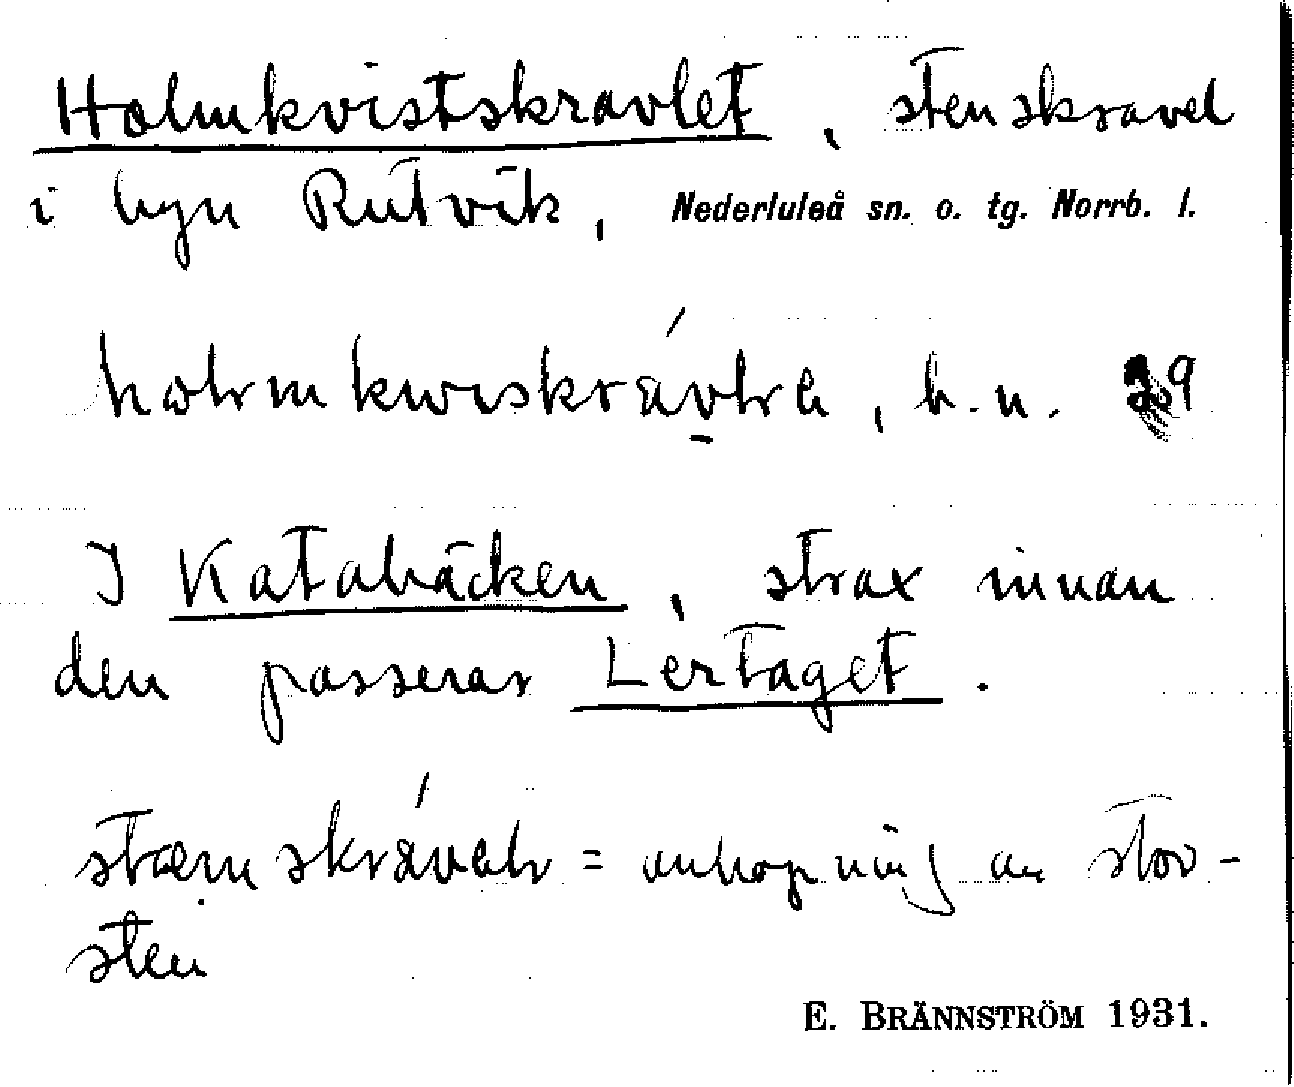 Holmkvistskravlet, stenskravel
i byn Rutvik, Nederluleå sn. o. tg. Norrb. l.
b.n. 29
I Katabäcken, strax innan
den passerar Lertaget.
= anhopning av stor-
sten
E. BRÄNNSTRÖM 1931.